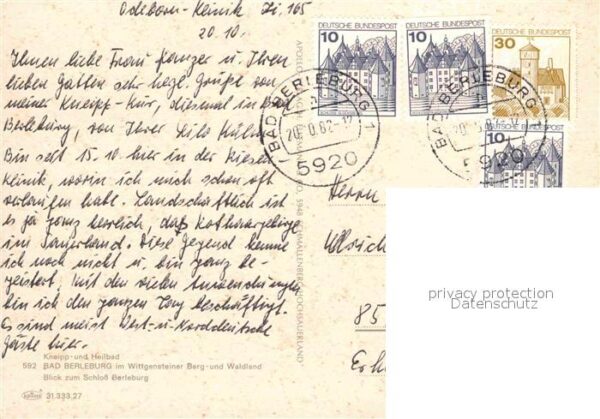 Odeborn-Klinik Zi. 165
20.10.
Ihnen liebe Frau Kanzer u. Ihren
lieben Gatten sehr herzl. Grüße von
meiner Kneipp-Kur, diesmal in Bad
Berleburg, von Ihrer
Bin seit 15.10. hier in der Riesen
Klinik, worin ich mich schon oft
verlaufen habe. Landschaftlich ist
es ja ganz herrlich, das Rothaargebirge
im Sauerland. Diese Gegend kenne
ich noch nicht u. bin ganz be-
geistert. Mit den vielen Anwendungen
bin ich den ganzen Tag beschäftigt.
Es sind meist West- u. Norddeutsche
Gäste hier.
Kneipp- und Heilbad
592 BAD BERLEBURG im Wittgensteiner Berg- und Waldland
Blick zum Schloß Berleburg
31.333.27
5948 SCHMALLENBERG HOCHSAUERLAND
DEUTSCHE BUNDESPOST
10
DEUTSCHE BUNDESPOST
10
DEUTSCHE BUNDESPOST
30
10
BAD BERLEBURG 1
5920
BAD BERLEBURG 1
5920
Herrn
85
privacy protection
Datenschutz